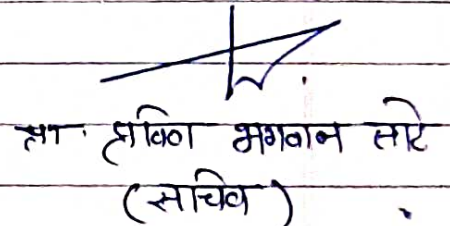 श्री. प्रविण भगवान लाटे
(सचिव)